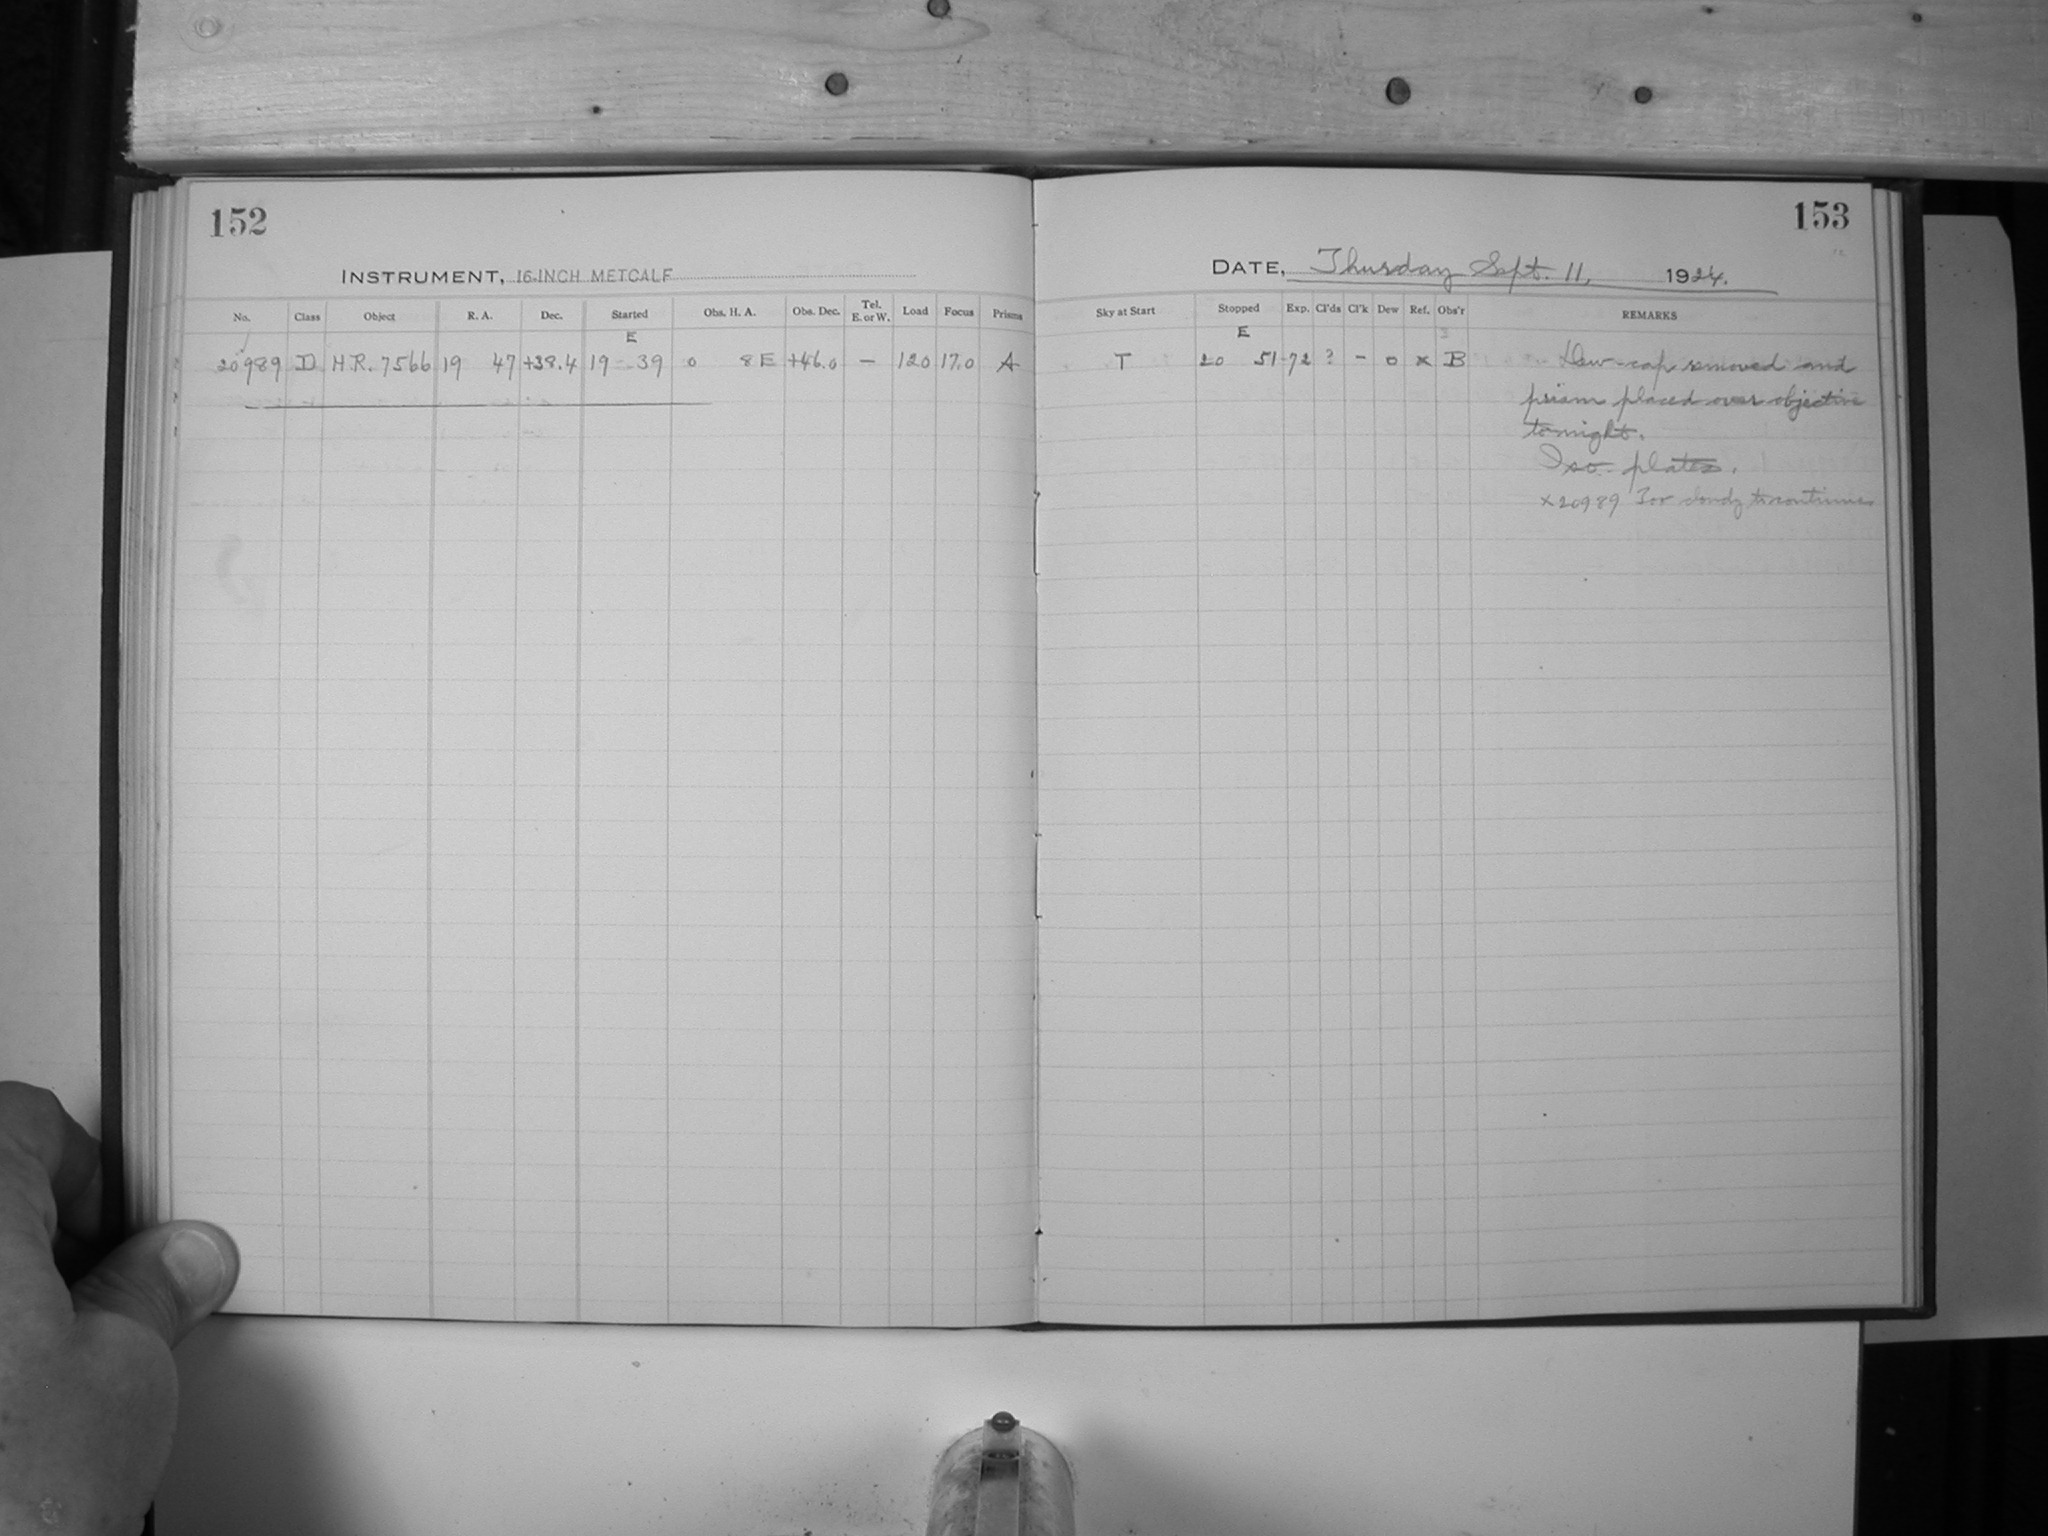 152
INSTRUMENT, 16-INCH METCALF
No. Class Object R. A. Dec. Started Obs. H. A. Obs. Dec. Tel. E. or W. Load Focus Prisms
E
20989 D H.R. 7566 19 47 +38.4 19 39 0 8 E +46.0 — 120 17.0 A
153
DATE, Thursday Sept. 11, 1924.
Sky at Start Stopped Exp. Cl'ds Cl'k Dew Ref. Obs'r REMARKS
E
T 20 51 72 ? - 0 x B Dew-cap removed and
prism placed over objective
tonight.
Iso. plates.
x 20989 Too cloudy to continue